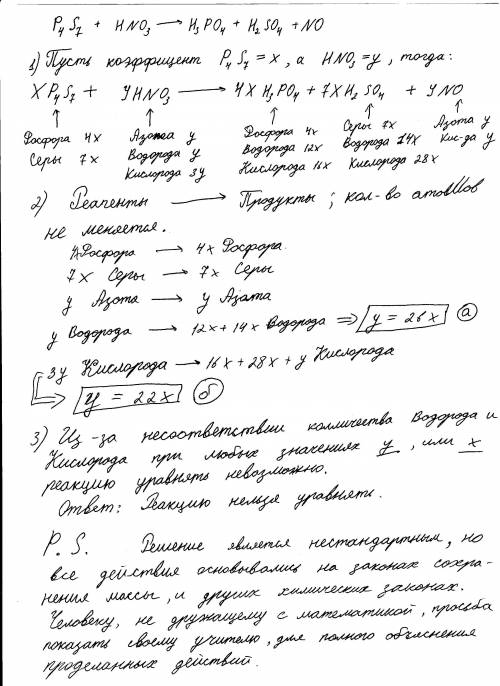 P₄S₇ + HNO₃ → H₃PO₄ + H₂SO₄ + NO
1) Пусть коэффицент P₄S₇ = x, а HNO₃ = y, тогда:
XP₄S₇ + YHNO₃ → 4XH₃PO₄ + 7XH₂SO₄ + YNO
↑ ↑ ↑ ↑ ↑
Фосфора 4x Азота y Фосфора 4x Серы 7x Азота y
Серы 7x Водорода y Водорода 12x Водорода 14x Кис-да y
Кислорода 3y Кислорода 16x Кислорода 28x
2) Реагенты → Продукты ; кол-во атомов
не меняется.
4xФосфора → 4x Фосфора.
7x Серы → 7x Серы
y Азота → y Азота
y Водорода → 12x+14x Водорода ⇒ y = 26x а
3y Кислорода → 16x+28x+y Кислорода
⇒ y = 22x б
3) Из-за несоответствии колличества Водорода и
Кислорода при любых значениях y, или x
реакцию уравнять невозможно.
Ответ: Реакцию нельзя уравнять.
P.S. Решение является нестандартным, но
все действия основывались на законах сохра-
нения массы, и других химических законах.
Человеку, не дружащему с математикой, просьба
показать своему учителю, для полного объяснения
проделанных действий.